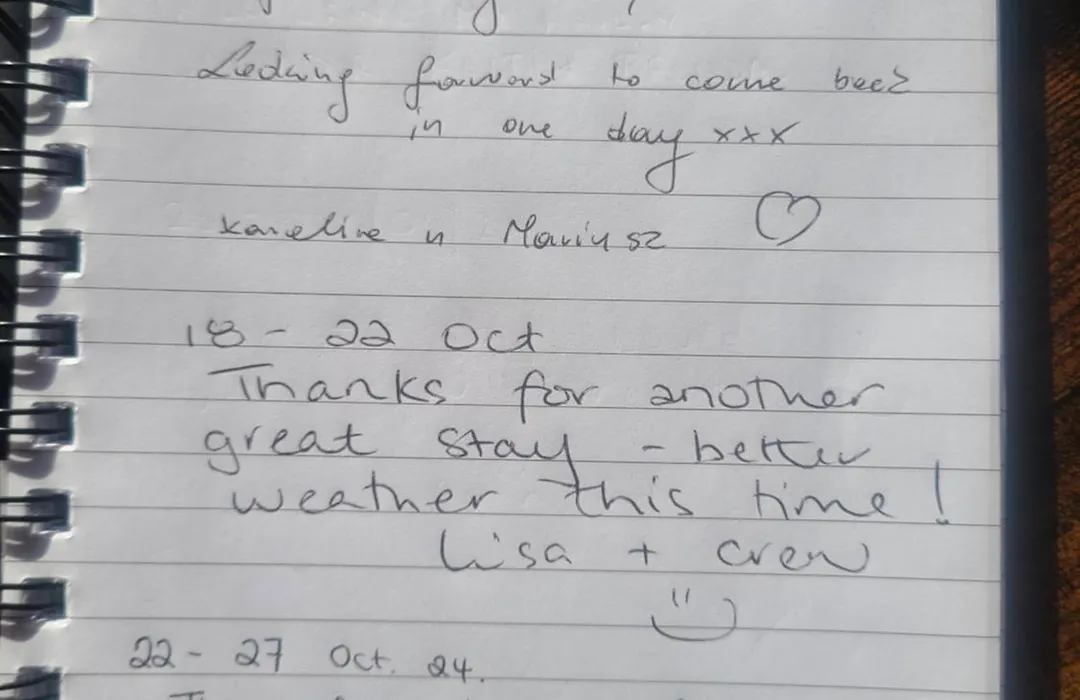 Looking forward to come back
in one day xxx
Kareline n Mariusz
18 - 22 Oct
Thanks for another
great stay - better
weather this time!
Lisa + crew
22 - 27 Oct. 24.